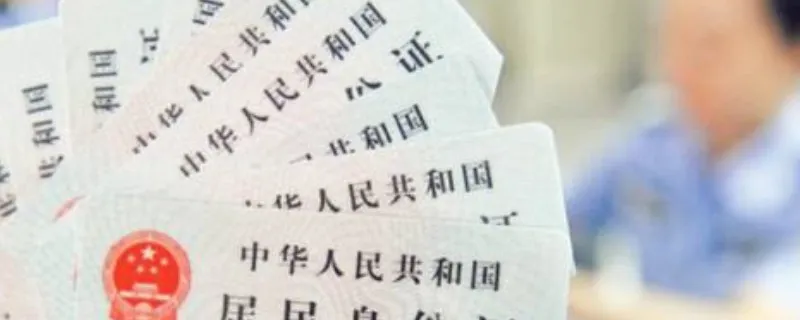 证
国
共和国
中华人民共和国
中华人民共和国
份证
共和国
中华人民共和国
证
中华人民共和国
居民身份证